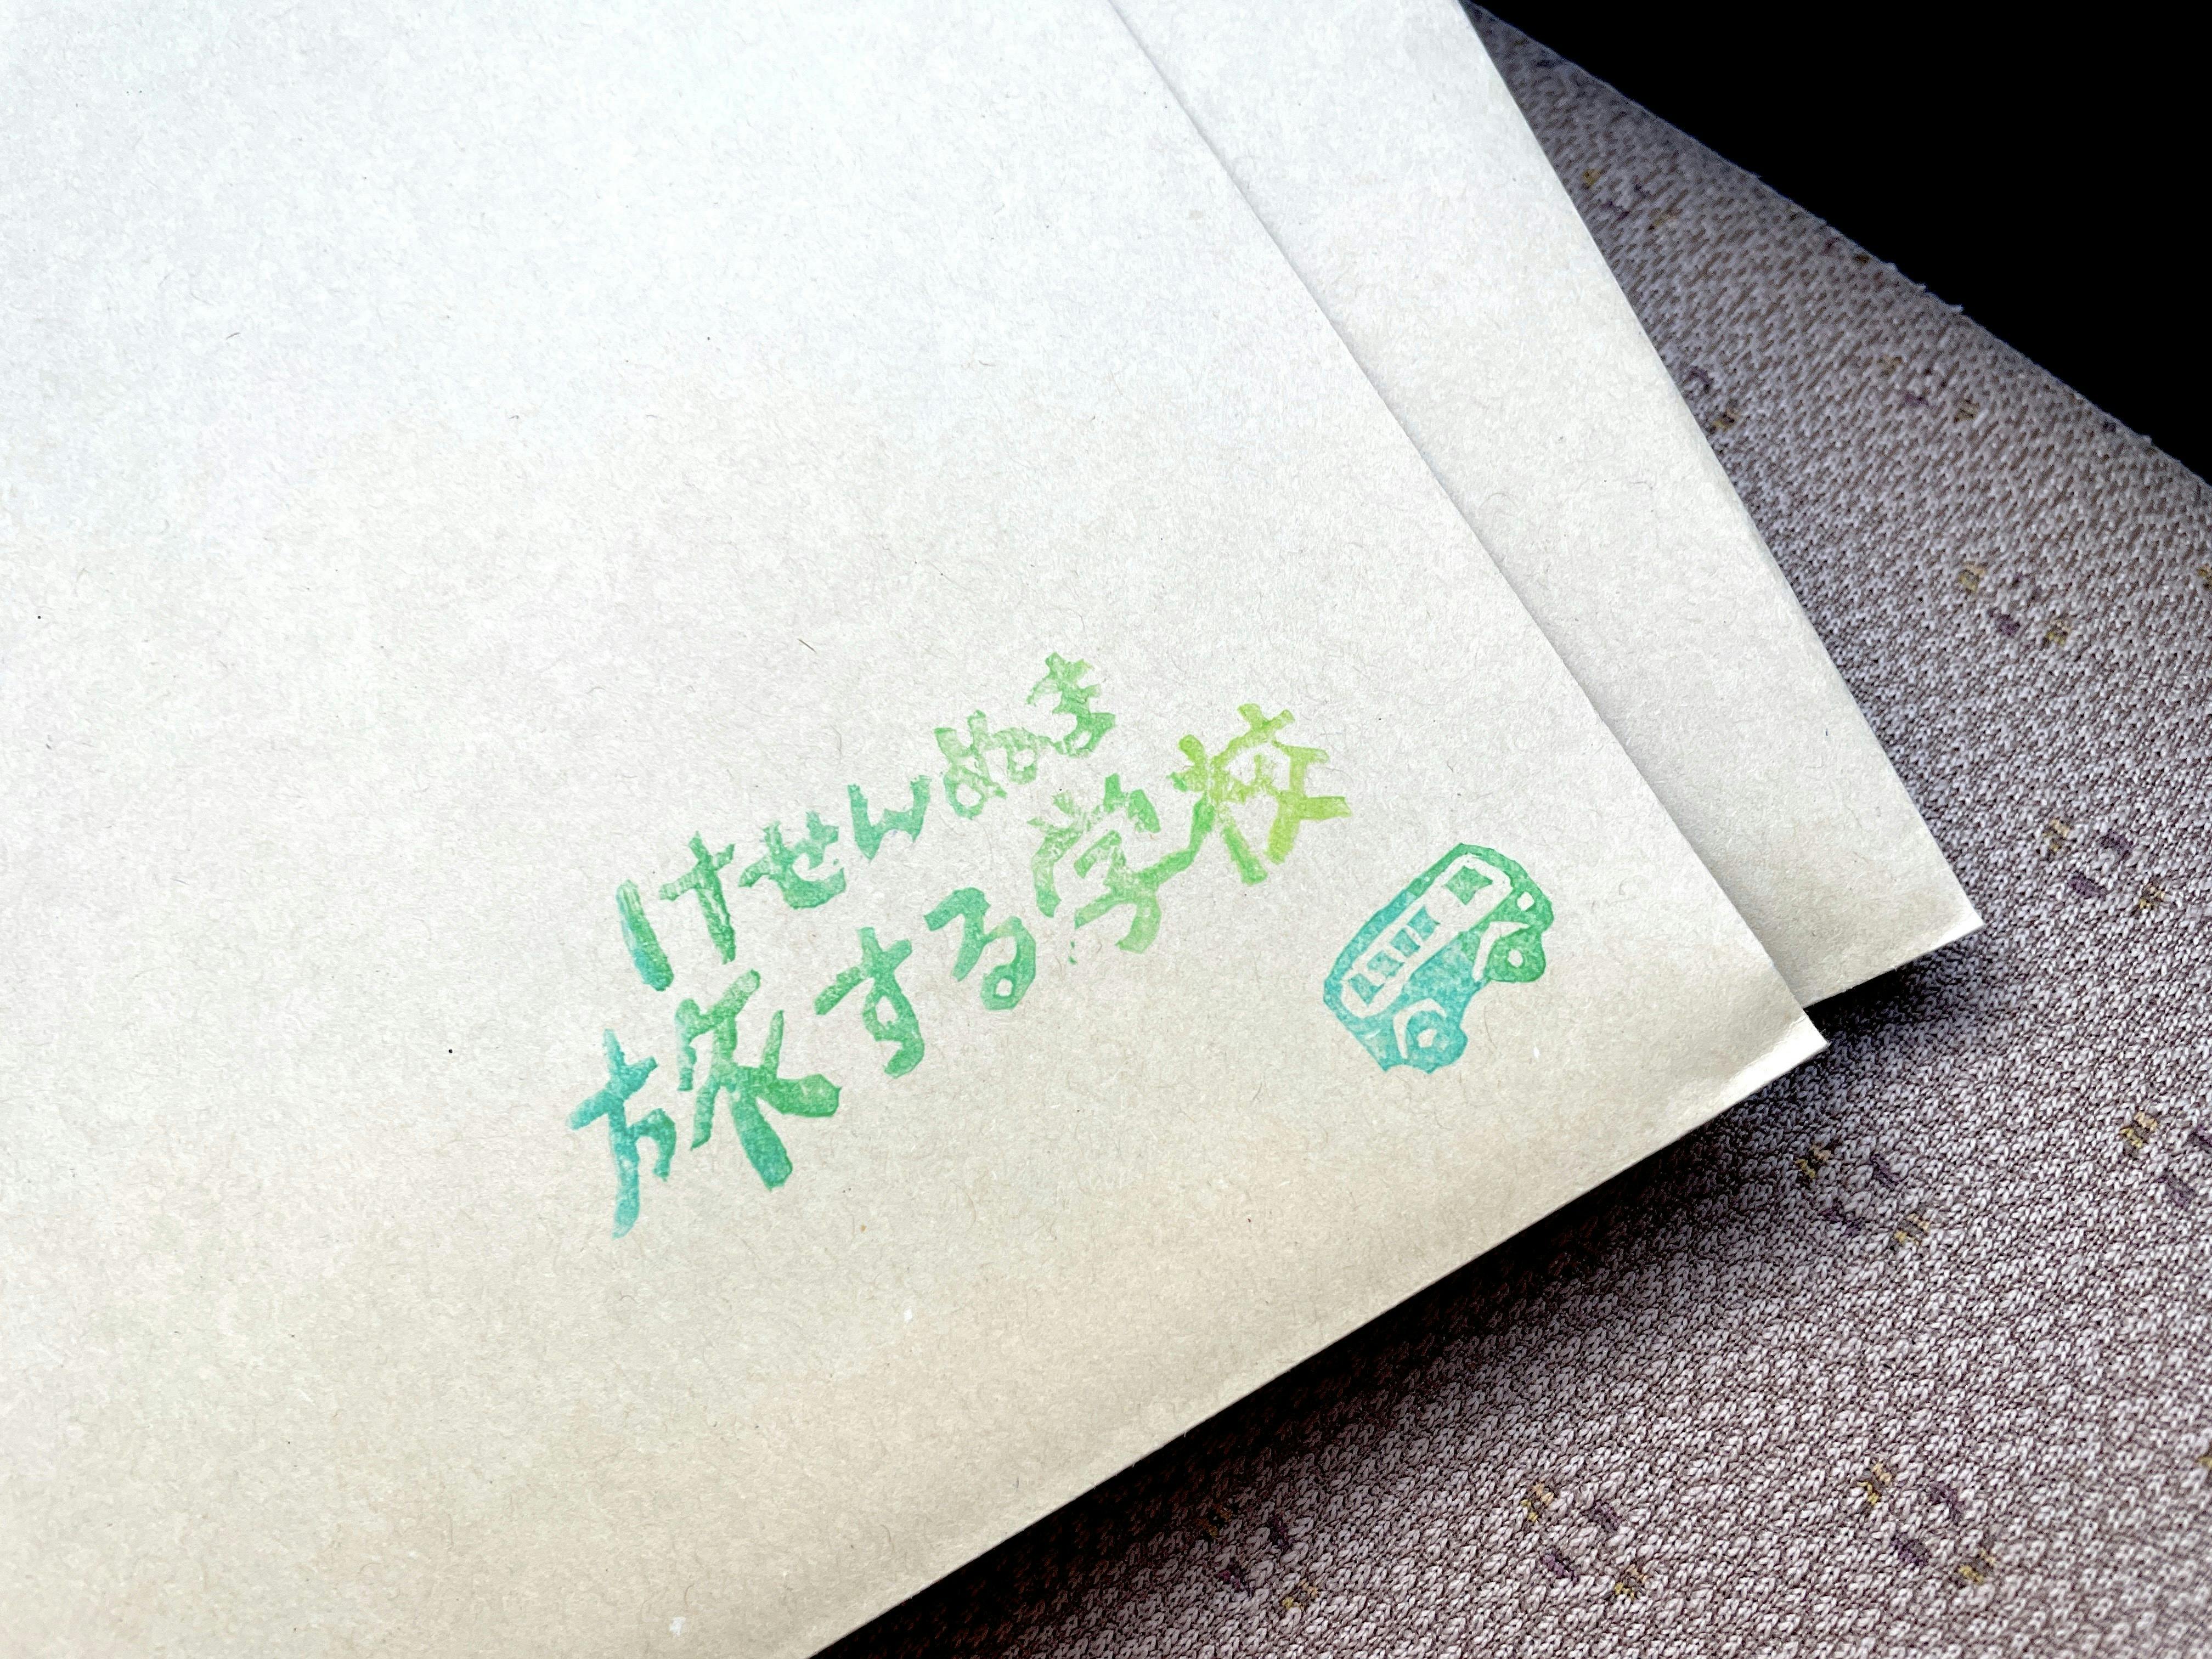 けせんぬま
旅する学校